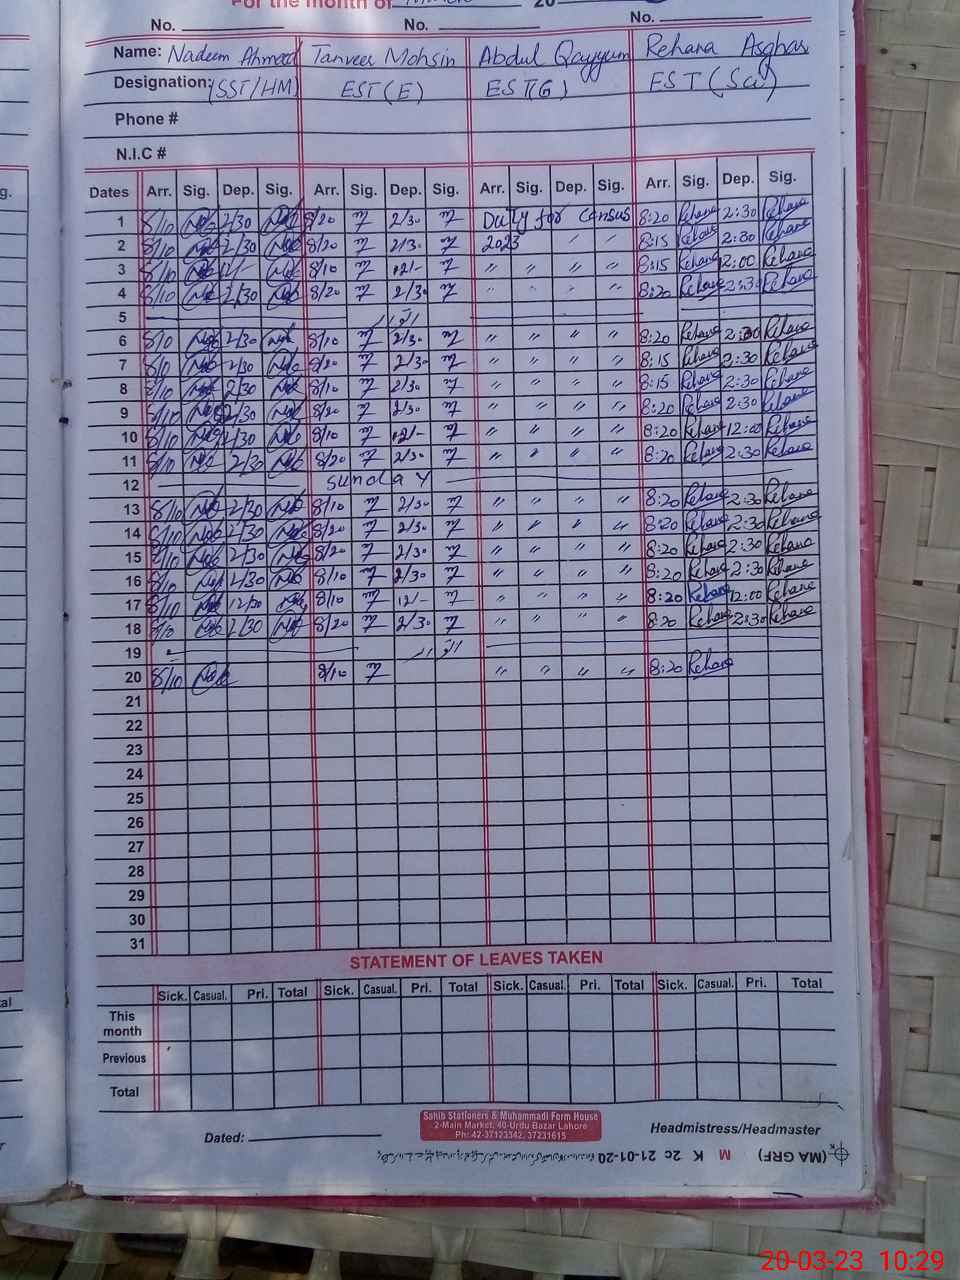 For the month of March 20
No. No. No.
Name: Nadeem Ahmed Tanveer Mohsin Abdul Qayyum Rehana Asghar
Designation: (SST/HM) EST(E) EST(G) EST(Sci)
Phone #
N.I.C #
Dates Arr. Sig. Dep. Sig. Arr. Sig. Dep. Sig. Arr. Sig. Dep. Sig. Arr. Sig. Dep. Sig.
1 8/10 2/30 8/20 2/30 Duty for census 8:20 Rehana 2:30 Rehana
2 8/10 2/30 8/20 2/30 2023 〃 〃 8:15 Rehana 2:30 Rehana
3 8/10 12/- 8/10 12/- 〃 〃 〃 〃 8:15 Rehana 12:00 Rehana
4 8/10 2/30 8/20 2/30 〃 〃 〃 〃 8:20 Rehana 2:30 Rehana
5 اتوار
6 8/10 2/30 8/10 2/30 〃 〃 〃 〃 8:20 Rehana 2:30 Rehana
7 8/10 2/30 8/20 2/30 〃 〃 〃 〃 8:15 Rehana 2:30 Rehana
8 8/10 2/30 8/10 2/30 〃 〃 〃 〃 8:15 Rehana 2:30 Rehana
9 8/10 2/30 8/20 2/30 〃 〃 〃 〃 8:20 Rehana 2:30 Rehana
10 8/10 2/30 8/10 12/- 〃 〃 〃 〃 8:20 Rehana 12:00 Rehana
11 8/10 2/30 8/20 2/30 〃 〃 〃 〃 8:20 Rehana 2:30 Rehana
12 Sunday
13 8/10 2/30 8/10 2/30 〃 〃 〃 〃 8:20 Rehana 2:30 Rehana
14 8/10 2/30 8/20 2/30 〃 〃 〃 〃 8:20 Rehana 2:30 Rehana
15 8/10 2/30 8/20 2/30 〃 〃 〃 〃 8:20 Rehana 2:30 Rehana
16 8/10 2/30 8/10 2/30 〃 〃 〃 〃 8:20 Rehana 2:30 Rehana
17 8/10 12/30 8/10 12/- 〃 〃 〃 〃 8:20 Rehana 12:00 Rehana
18 8/10 2/30 8/20 2/30 〃 〃 〃 〃 8:20 Rehana 2:30 Rehana
19 اتوار
20 8/10 8/10 〃 〃 〃 〃 8:20 Rehana
21
22
23
24
25
26
27
28
29
30
31
STATEMENT OF LEAVES TAKEN
Sick. Casual. Pri. Total Sick. Casual. Pri. Total Sick. Casual. Pri. Total Sick. Casual. Pri. Total
This month
Previous
Total
Sahib Stationers & Muhammadi Form House
2-Main Market, 40-Urdu Bazar Lahore
Ph: 42-37123342, 37231615
Dated: Headmistress/Headmaster
(MA GRF) M K 2c 21-01-20
20-03-23 10:29